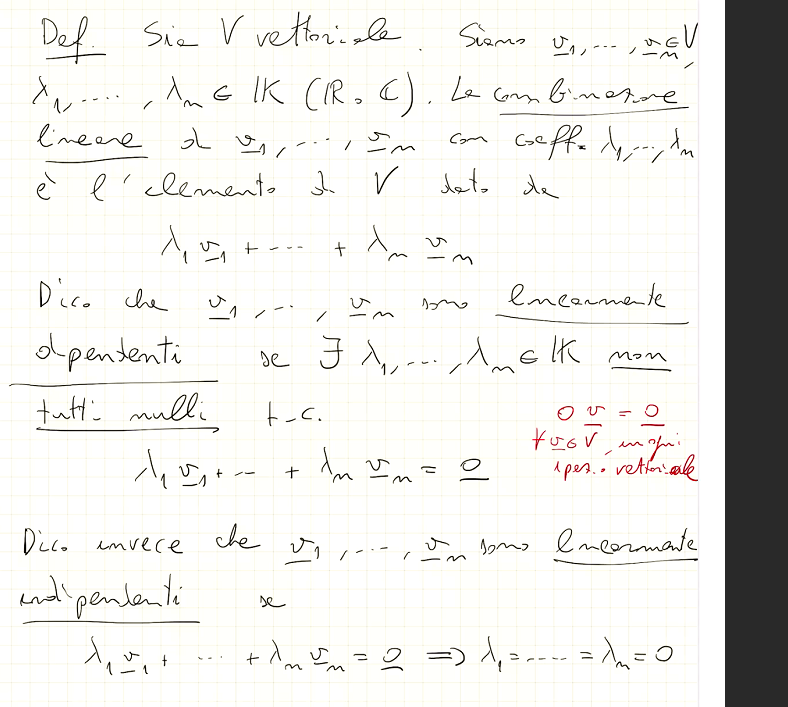 Def. Sia V vettoriale. Siano v₁, ..., vₙ ∈ V,
λ₁, ...., λₙ ∈ K (R o C). La combinazione
lineare di v₁, ..., vₙ con coeff. λ₁, ..., λₙ
è l'elemento di V dato da
λ₁ v₁ + .... + λₙ vₙ
Dico che v₁, ..., vₙ sono linearmente
dipendenti se ∃ λ₁, ..., λₙ ∈ K non
tutti nulli t.c.
λ₁ v₁ + ... + λₙ vₙ = 0
0 v = 0
∀ v ∈ V, in ogni
spazio vettoriale
Dico invece che v₁, ...., vₙ sono linearmente
indipendenti se
λ₁ v₁ + .... + λₙ vₙ = 0 ⟹ λ₁ = ..... = λₙ = 0